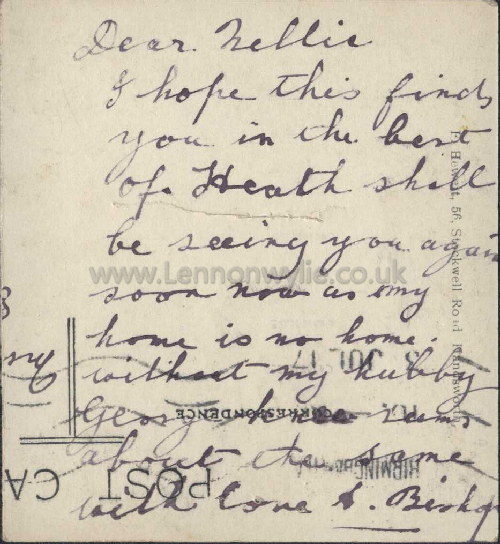 Dear Nellie
I hope this finds
you in the best
of Heath shall
be seeing you again
soon now as my
home is no home.
without my hubby
about the same
with love S. Bishop
www.Lennonwylie.co.uk
Hewett, 56, Stockwell Road Handsworth
JUL 17
CORRESPONDENCE
BIRMINGHA
POST CA